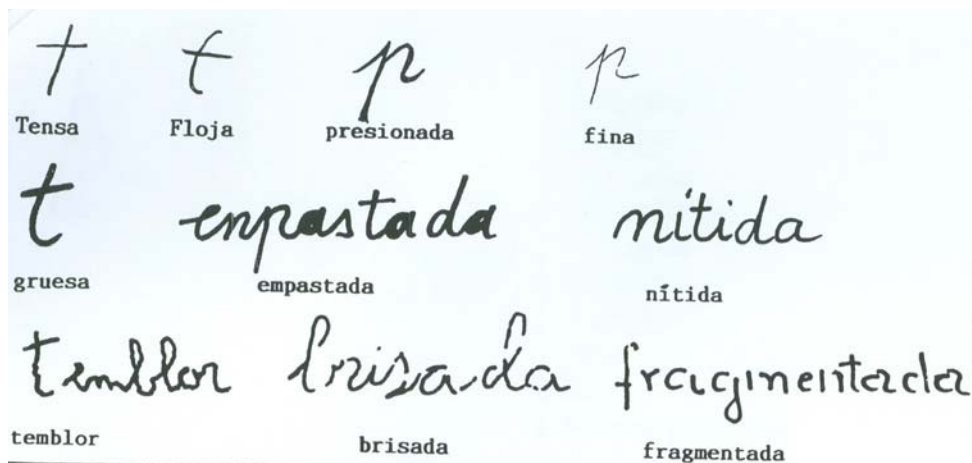 t t p p
Tensa Floja presionada fina
t enpastada nítida
gruesa empastada nítida
temblor brisada fragmentada
temblor brisada fragmentada